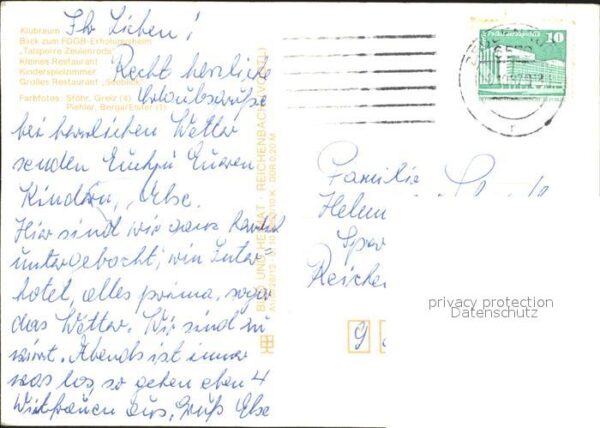 Klubraum
Blick zum FDGB-Erholungsheim
„Talsperre Zeulenroda"
Kleines Restaurant
Kinderspielzimmer
Großes Restaurant „Seeblick"
Farbfotos: Stöhr, Greiz (4)
Piehler, Berga/Elster (1)
Ihr Lieben!
Recht herzliche
Urlaubsgrüße
bei herrlichen Wetter
senden Euch u Eueren
Kindern, Else.
Hier sind wir ganz
untergebracht, wie Inter=
hotel, alles prima, sogar
das Wetter. Wir sind zu
Abends ist immer
was los, so gehen eben 4
Witfrauen aus, Gruß Else
BILD UND HEIMAT · REICHENBACH (VOGTL)
DDR 0,20 M
10
Familie
Helm
Reiche
privacy protection
Datenschutz